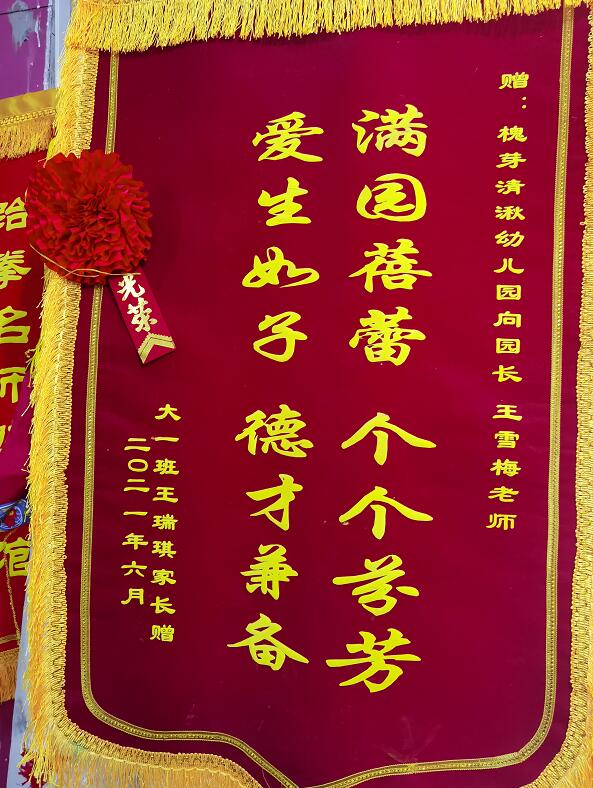 赠：槐芽清湫幼儿园向园长 王雪梅老师
满园蓓蕾 个个芬芳
爱生如子 德才兼备
大一班王瑞琪家长赠
二〇二一年六月
光荣
拳名师
馆